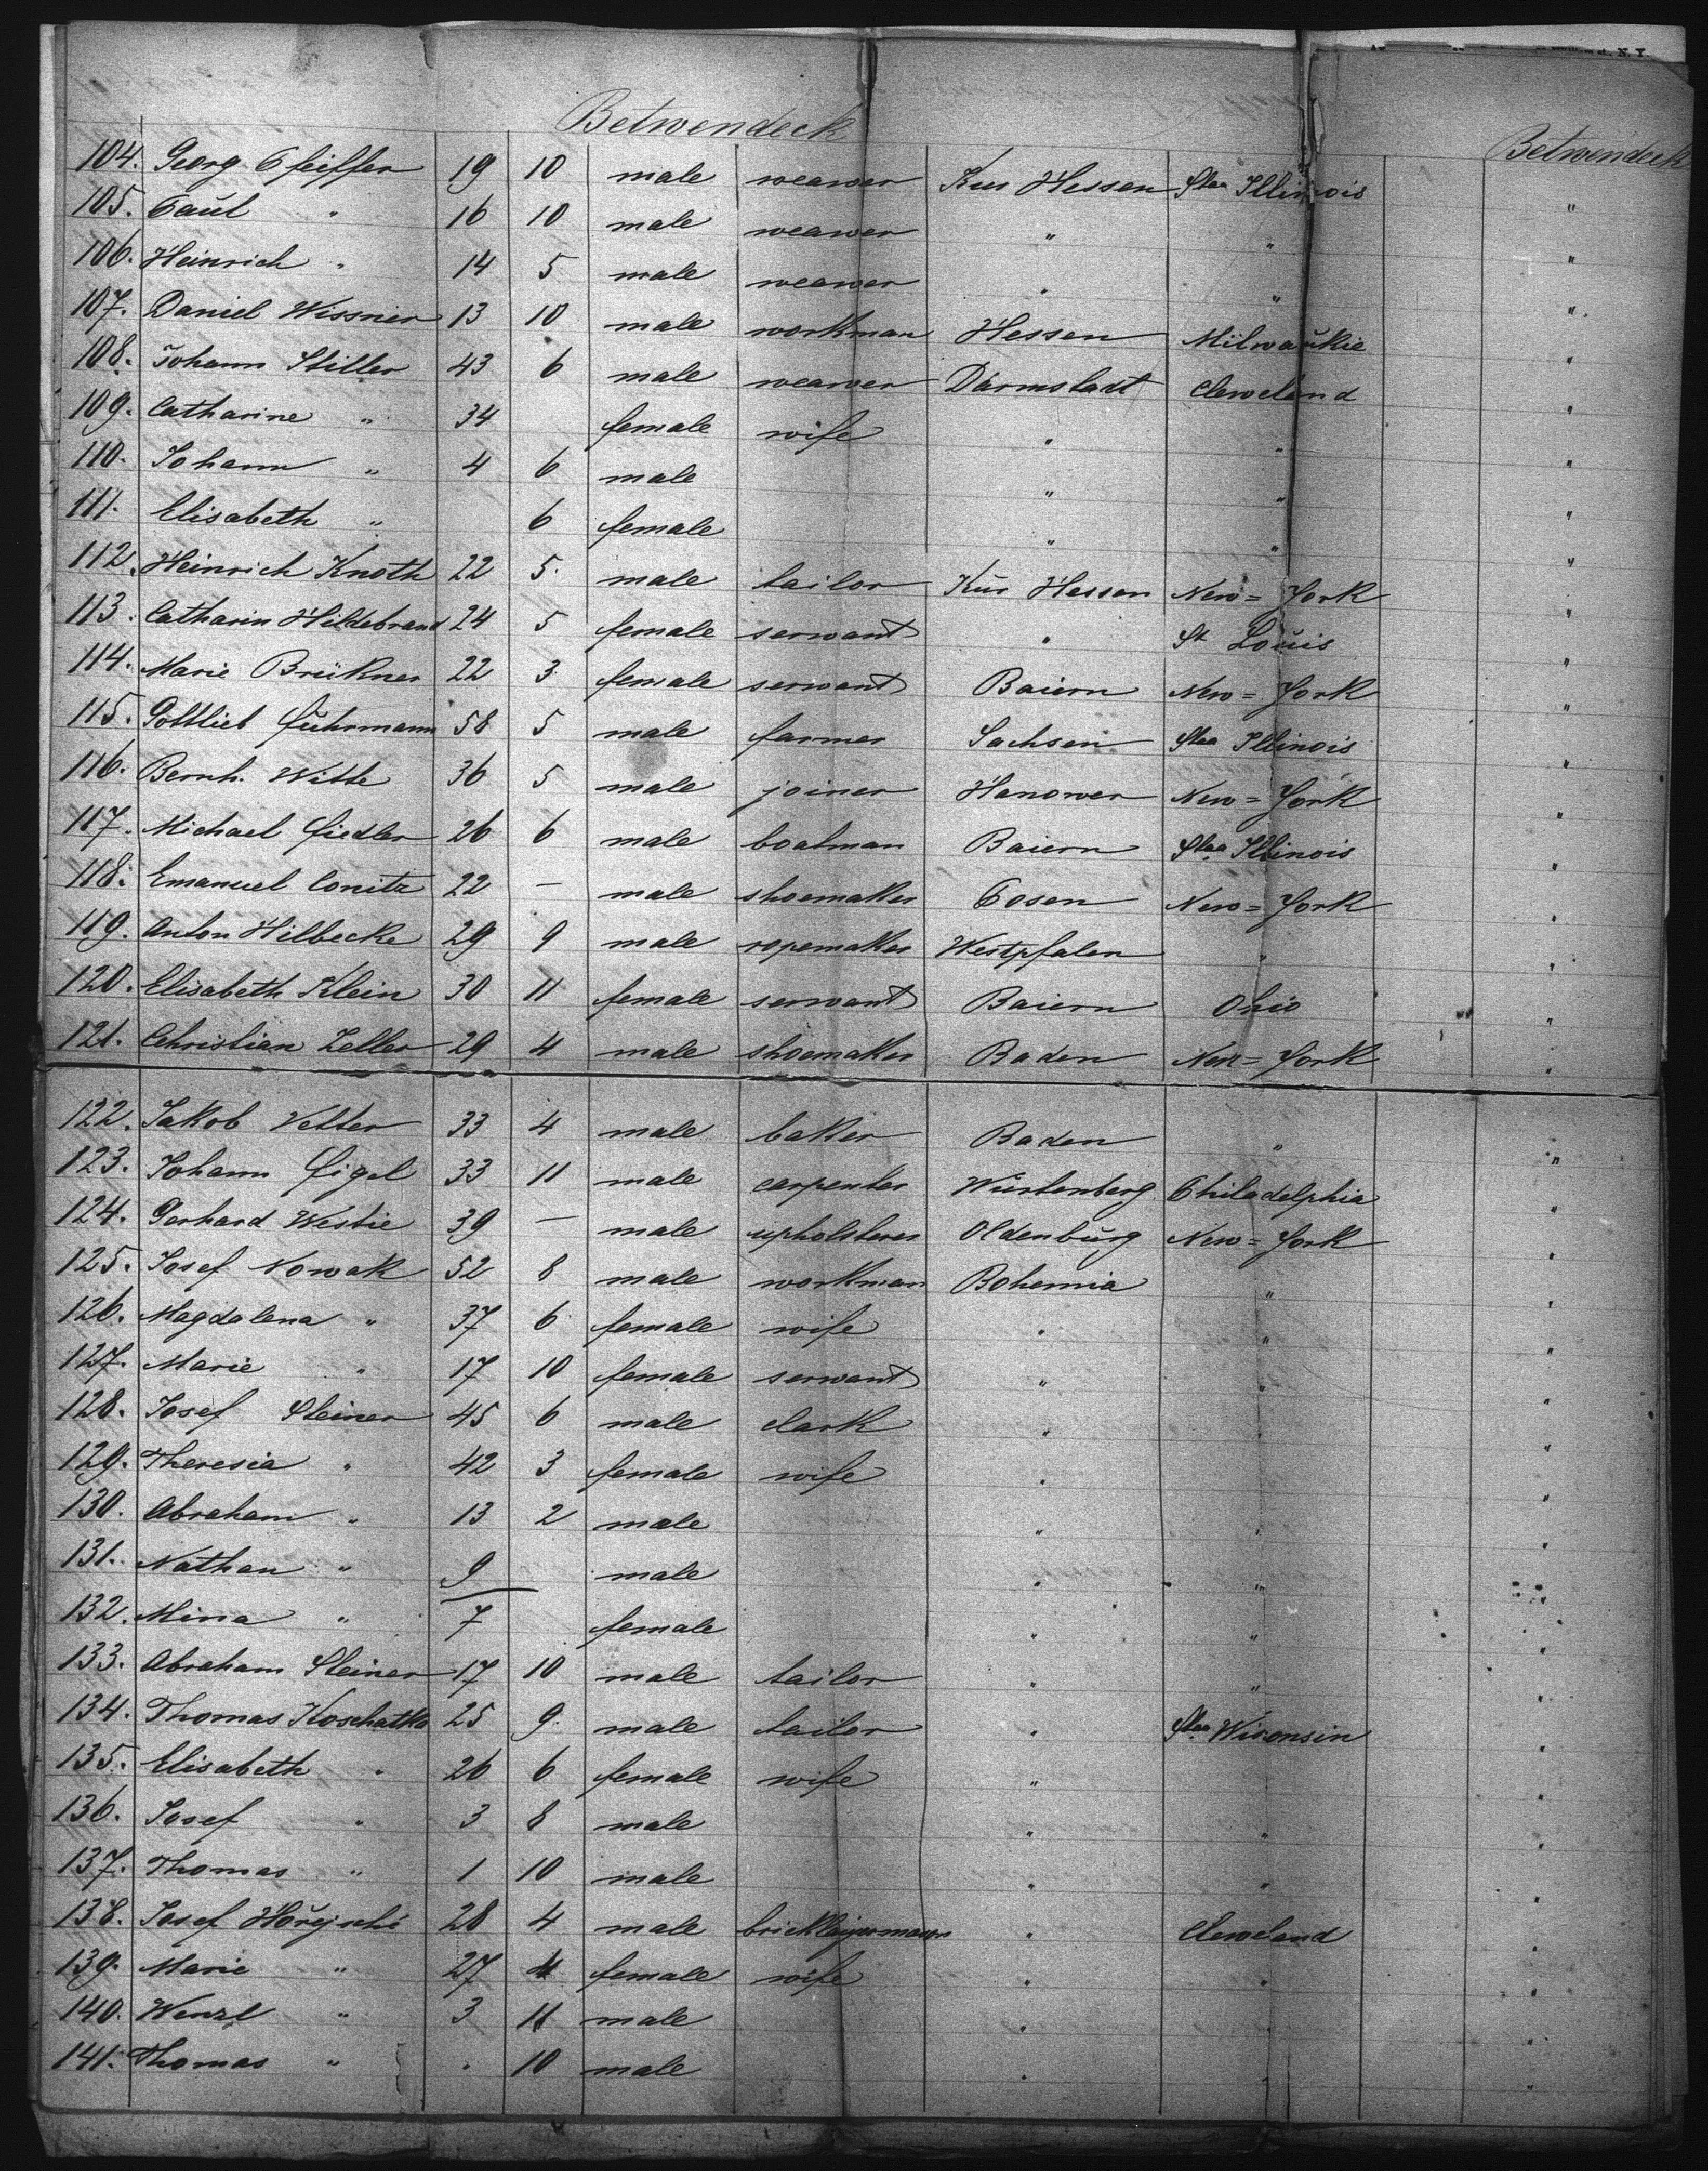 N. Y.
Betwendeck Betwendeck
104. Georg Pfeiffer 19 10 male weawer Kur Hessen Staa Illinois "
105. Paul " 16 10 male weawer " " "
106. Heinrich " 14 5 male weawer " " "
107. Daniel Wissner 13 10 male workman Hessen Milwaukie "
108. Johann Stiller 43 6 male weawer Darmstadt Cleweland "
109. Catharine " 34 female wife " " "
110. Johann " 4 6 male " " "
111. Elisabeth " 6 female " " "
112. Heinrich Knoth 22 5 male tailor Kur Hessen New=York "
113. Catharin Hildebrand 24 5 female serwant " St Louis "
114. Marie Brükner 22 3 female serwant Baiern New=York "
115. Gottlieb Fuhrmann 58 5 male farmer Sachsen Staa Illinois "
116. Bernh. Witte 36 5 male joiner Hanower New=York "
117. Michael Fiedler 26 6 male boatman Baiern Staa Illinois "
118. Emanuel Conitz 22 — male shoemaker Posen New=York "
119. Anton Hilbecke 29 9 male ropemaker Westpfalen " "
120. Elisabeth Klein 30 11 female serwant Baiern Ohio "
121. Christian Zeller 29 4 male shoemaker Baden New=York "
122. Jakob Vetter 33 4 male baker Baden " "
123. Johann Figel 33 11 male carpenter Würtenberg Philadelphia "
124. Gerhard Westie 39 — male upholsterer Oldenburg New=York "
125. Josef Nowak 52 8 male workman Bohemia " "
126. Magdalena " 37 6 female wife " " "
127. Marie " 17 10 female serwant " " "
128. Josef Steiner 45 6 male clark " " "
129. Theresia " 42 3 female wife " "
130. Abraham " 13 2 male " " "
131. Nathan " 9 male " " "
132. Mina " 7 female " " "
133. Abraham Steiner 17 10 male tailor " " "
134. Thomas Koschatka 25 9 male tailor " Staa Wisconsin "
135. Elisabeth " 26 6 female wife " " "
136. Josef " 3 8 male " " "
137. Thomas " 1 10 male " " "
138. Josef Hořejschi 28 4 male bricklayermason " Cleweland "
139. Marie " 27 4 female wife " " "
140. Wenzl " 3 11 male " " "
141. Thomas " " 10 male " "